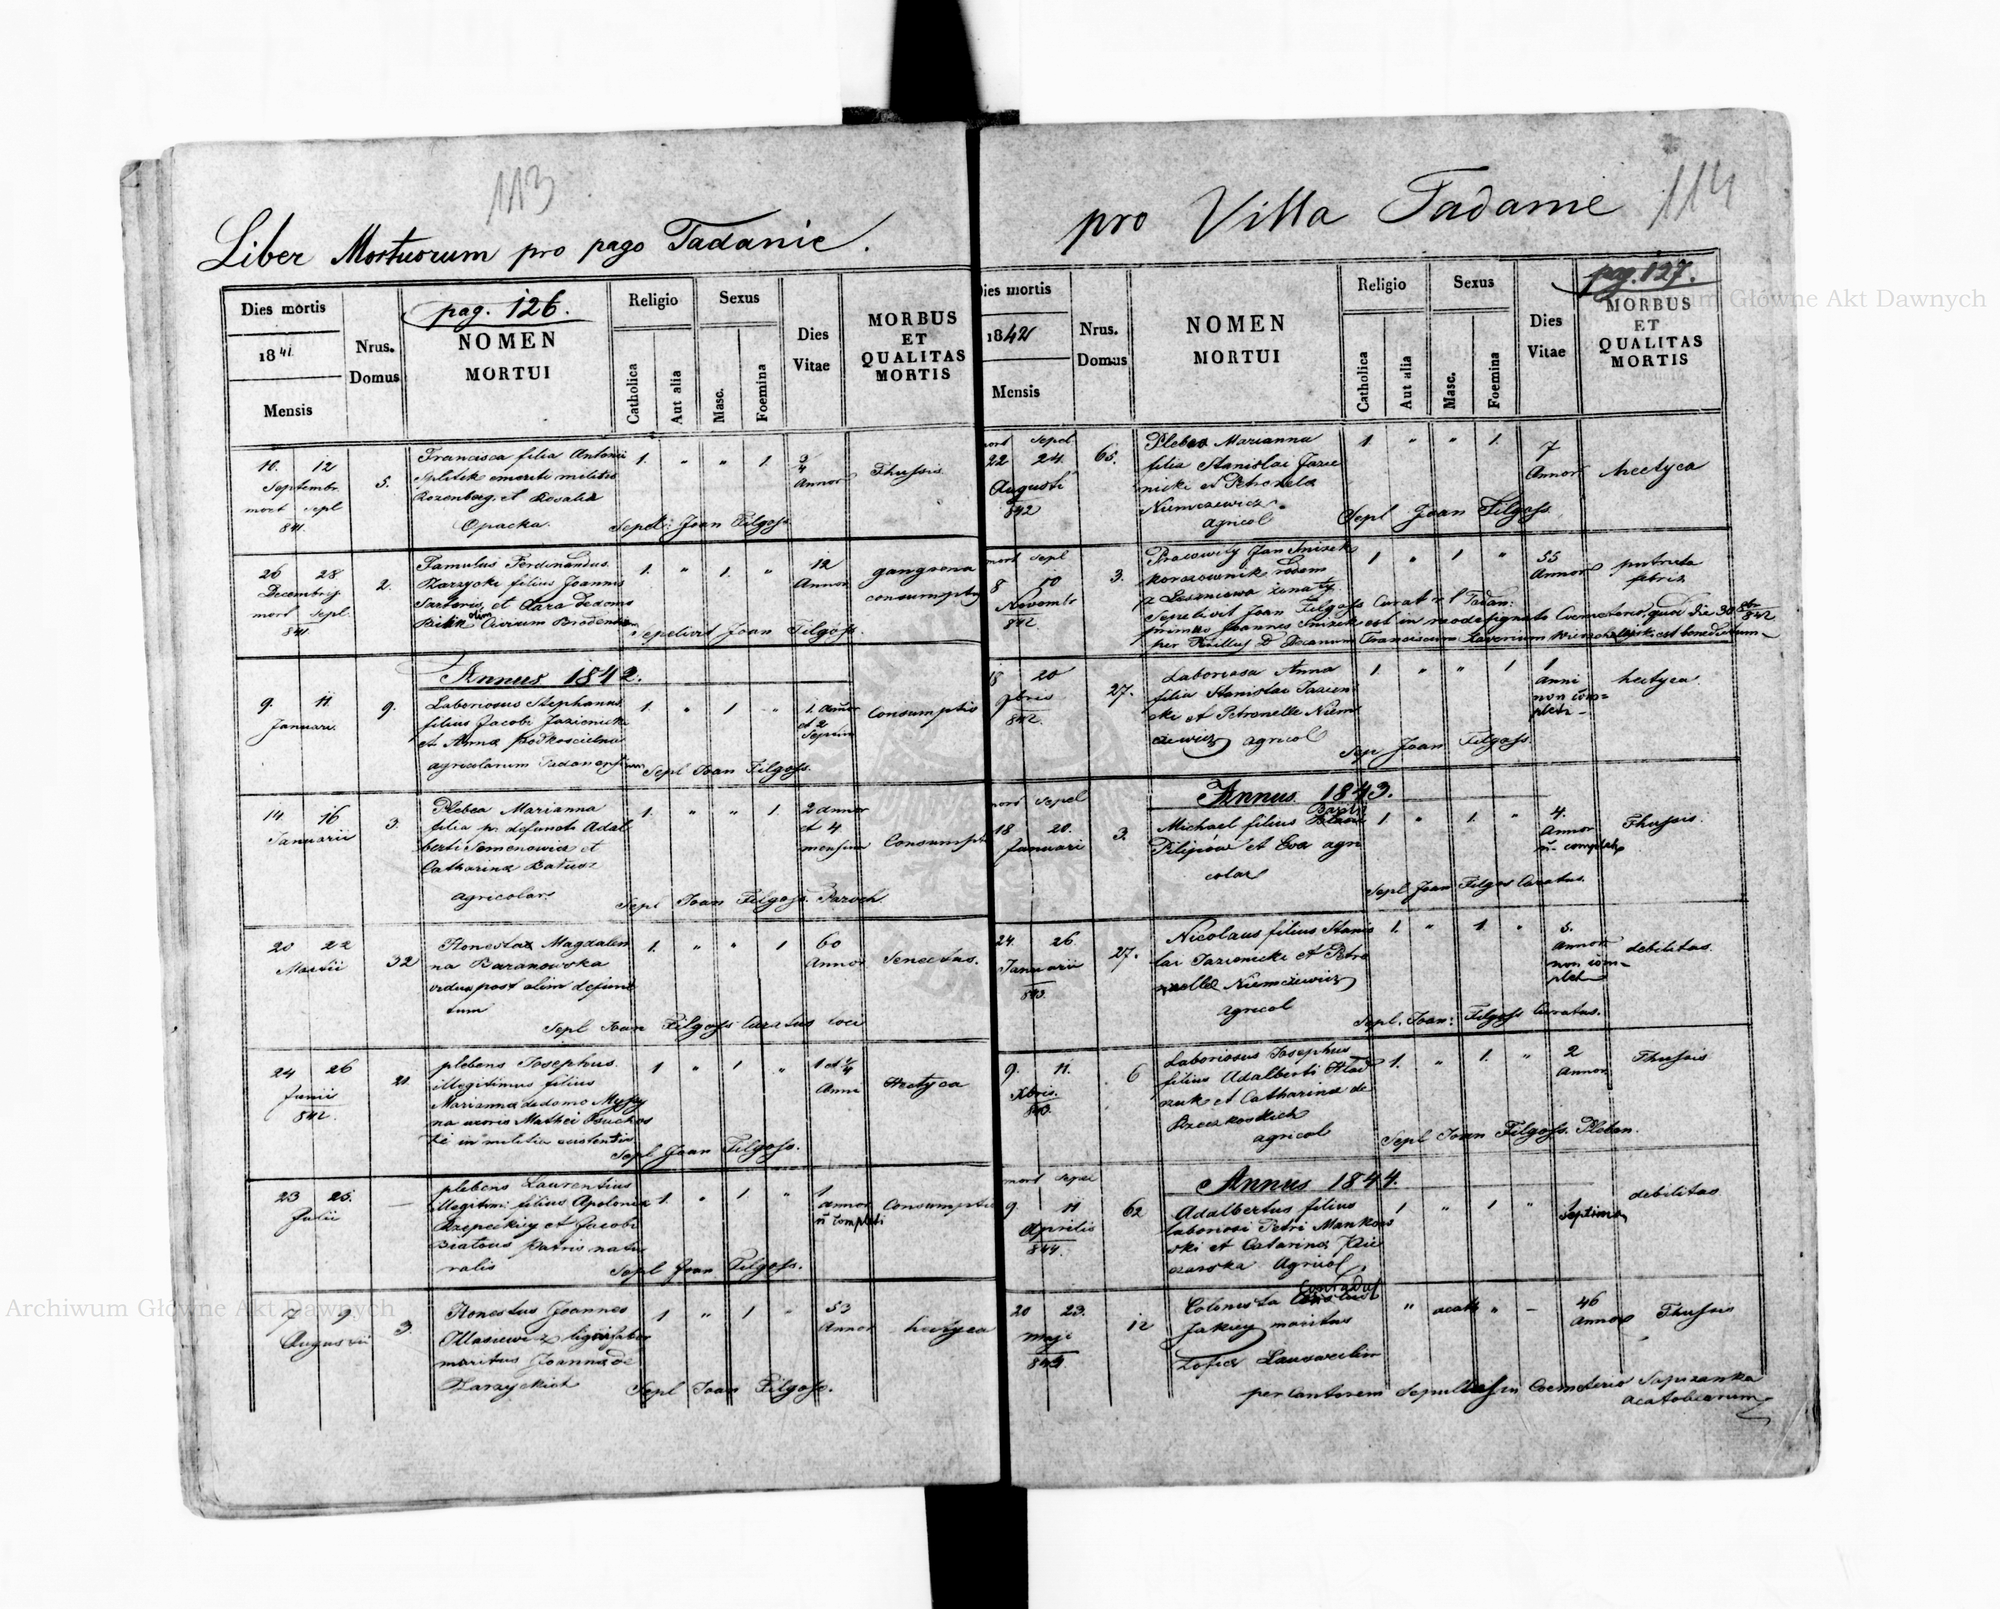 113
Liber Mortuorum pro pago Tadanie.
pag. 126.
Dies mortis
1841.
Mensis
Nrus.
Domus
NOMEN
MORTUI
Religio
Catholica
Aut alia
Sexus
Masc.
Foemina
Dies
Vitae
MORBUS
ET
QUALITAS
MORTIS
10. 12
Septembr.
mort sepl
841.
5.
Francisca filia Antonii
emeriti militis
Rozenberg. et Rosalia
Opacka.
1. " " 1.
3/4
Annor
Thussis
Sepel: Joan Filgoss.
26 28
Decembris
mort Sepl.
841.
2.
Famulus Ferdinandus.
Zarzycki filius Joannis
Sartoris et Clara de domo
olim Civium Brodensium
1. " 1. "
12
Annor
gangrena
Sepelivit Joan Filgoss.
Annus 1842.
9. 11.
Januari.
9.
Laboriosus Stephanus
filius Jacobi Jazienicki
et Anna Podkoscielna
agricolarum
1. " 1 "
Consumptio
Sepl Joan Filgoss.
14. 16
Januarii
3.
Plebea Marianna
filia p. defuncti Adal
berti Semenowicz et
Catharina
agricolar.
1. " " 1
2 annor
et 4
mensium
Consumpt
Sepl Joan Filgoss. Paroch
20 22
Martii
32
Honesta Magdalen
na Baranowska
vidua post olim defunc
tum
1. " " 1
60
Annor
Senectus.
Sepl Joan Filgoss Curatus loci
24 26
Junii
842.
21.
plebeus Josephus.
illegitimus filius
Marianna de domo
na uxoris Mathei
in militia
1 " 1 "
1 et 1/4
Anni
Hectyca
Sepl Joan Filgoss.
23 25.
Julii
—
plebeus Laurentius
illegitimi filius Apolonia
Rzepeckiey et Jacobi
patris natu
ralis
1. " 1 "
1
annor
n completi
Consumptio
Sepl Joan Filgoss.
7 9
Augustii
3.
Honestus Joannes
maritus Joanna de
Zarzyckich
1 " 1 "
53
Annor
hectyca
Sepl Joan Filgoss.
pro Villa Tadanie
114
pag. 127.
Dies mortis
1842
Mensis
Nrus.
Domus
NOMEN
MORTUI
Religio
Catholica
Aut alia
Sexus
Masc.
Foemina
Dies
Vitae
MORBUS
ET
QUALITAS
MORTIS
mort Sepel
22 24.
Augusti
842
65.
Plebea Marianna
filia Stanislai Jazie
nicki et Petronela
Niemczewicz.
agricol
1. " " 1.
7
Annor
hectyca
Sepl Joan Filgoss.
mort Sepl
8 10
Novembr
842.
3.
Pracowity Jan Snizek
rodem
z Leszniowa zonaty
1 " 1 "
55
Annor
putrida
febris
Sepelivit Joan Filgoss Curat
primus Joannes Snizek est in neodesignato Coemeterio, quod die 842.
per D Decanum Franciscum Xaverium est benedictum
18 20
9bris
842.
27.
Laboriosa Anna
filia Stanislai Jazien
cki et Petronelle Niem
czewicz agricol
1 " " 1
1
anni
non com=
pleti
hectyca.
Sep Joan Filgoss.
Annus 1843.
mort Sepel
18 20.
Januari
3.
Michael filius Basili
Filipow et Eva agri
colar
1 " 1. "
4.
Annor
Thussis.
Sepl Joan Filgos Curatus.
24. 26.
Januarii
843.
27.
Nicolaus filius Stanis
lai Jazienicki et Petro
nelle Niemczewicz
agricol
1. " 1. "
5.
annor
non com=
plet
debilitas.
Sepl. Joan: Filgoss Curatus.
9. 11.
Xbris.
843.
6
Laboriosus Josephus
filius Adalberti
et Catharina de
agricol
1. " 1. "
2
Annor
Thussis
Sepl Joan Filgoss. Pleban.
Annus 1844.
mort Sepel
9. 11
Aprilis
844.
62
Adalbertus filius
laboriosi Petri Mankow
ski et Catarina
Agricol
1 " 1 "
debilitas
20 23.
Maji
844.
12
Colonista
maritus
" acath " —
46
Annor
Thussis
per Cantorem Sepultus in Coemeterio Sapizanka
acatolicorum
Archiwum Główne Akt Dawnych
Archiwum Główne Akt Dawnych